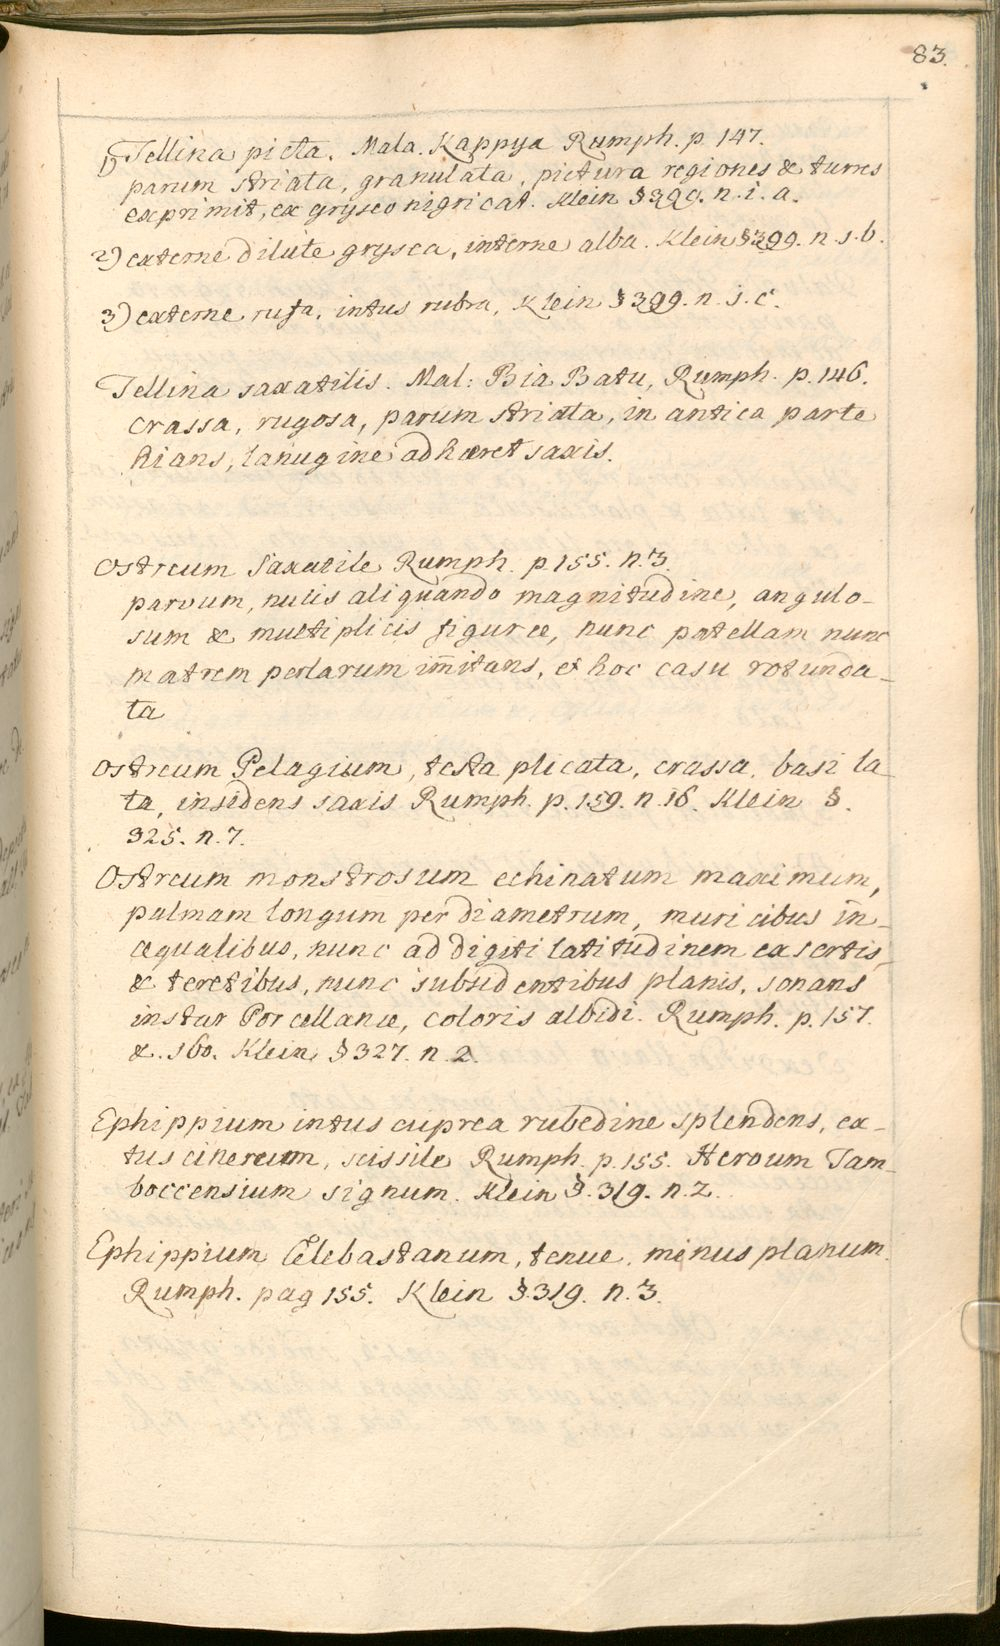 83.
1) Tellina picta. Mala. Kappya Rumph. p. 147.
parum striata, granulata, pictura regiones & turres
exprimit, ex gryseo nigricat. Klein § 399. n. i. a.
2) externe dilute grysea, interne alba. Klein § 399. n. s. b.
3) externe rufa, intus rubra, Klein § 399. n. s. c.
Tellina saxatilis. Mal: Bia Batu, Rumph. p. 146.
crassa, rugosa, parum striata, in antica parte
hians, lanugine adhæret saxis.
Ostreum Saxatile Rumph. p. 155. n. 3.
parvum, nucis aliquando magnitudine, angulo-
sum & multiplicis figuræ, nunc patellam nunc
matrem perlarum imitans, et hoc casu rotunda-
ta
Ostreum Pelagium, testa plicata, crassa, basi la
ta, insidens saxis Rumph. p. 159. n. 16. Klein §.
325. n. 7.
Ostreum monstrosum echinatum maximum,
palmam longum per diametrum, muricibus in-
æqualibus, nunc ad digiti latitudinem exsertis
& teretibus, nunc subsidentibus planis, sonans
instar Porcellanæ, coloris albidi. Rumph. p. 157.
&. 160. Klein § 327. n. 2.
Ephippium intus cuprea rubedine splendens, ex-
tus cinereum, scissile Rumph. p. 155. Heroum Tam-
boccensium signum. Klein §. 319. n. 2.
Ephippium Celebastanum, tenue, minus planum.
Rumph. pag 155. Klein §. 319. n. 3.